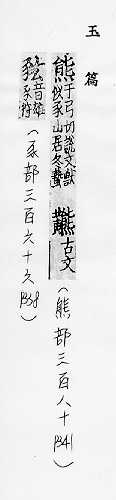 玉篇
熊 于弓切說文獸似豕山居冬蟄 古文
(熊部三百八十 1341)
音雄豕
(豕部三百六十九 1338)